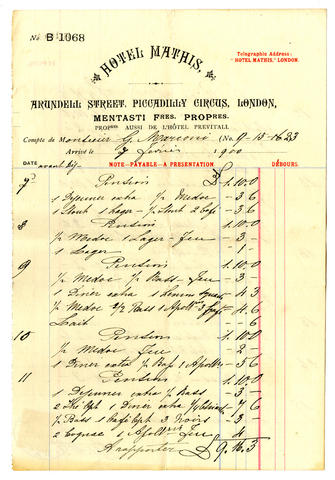 No B 1068
Telegraphic Address:
"HOTEL MATHIS," LONDON.
HOTEL MATHIS,
ARUNDELL STREET, PICCADILLY CIRCUS, LONDON,
MENTASTI FRES. PROPRES.
PROPRES AUSSI DE L'HÔTEL PREVITALL
Compte de Monsieur G. Marconi (No. 9-15-16-23
Arrivé le 7 1900
DATE NOTE-PAYABLE-A PRESENTATION £ DÉBOURS.
7 Pension £ 1.10.0
1 Dejeuner extra 1/2 Medoc - 3 6
1 Stout 1 Lager - 1/2 Stout 2 Cafe - 3 6
8 Pension 1.10.0
1/2 Medoc 1 Lager - Feu - 3 -
1 Lager - 1 -
9 Pension 1.10.0
1/2 Medoc 1/2 Bass Feu - 3 -
1 Diner extra 1 Lemon Squash - 4 3
1/2 Medoc 1 Apoll - 4 6
Lait - - 6
10 Pension 1.10.0
1/2 Medoc Feu - 2 -
1 Diner extra 1/2 Bass 1 Apoll - 5 6
11 Pension 1.10.0
1 Dejeuner extra 1/2 Bass - 3 -
2 Thé Cplt 1 Diner extra - 7 6
1/2 Bass 1 Café Cplt 3 Noirs - 3 -
2 Cognac 1 Apoll Feu - 4 -
A rapporter £ 9.16.3